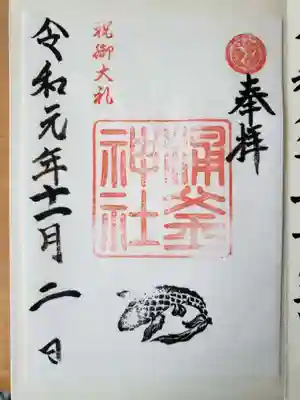 奉拝
涌釜
神社
祝御大礼
令和元年十一月二日